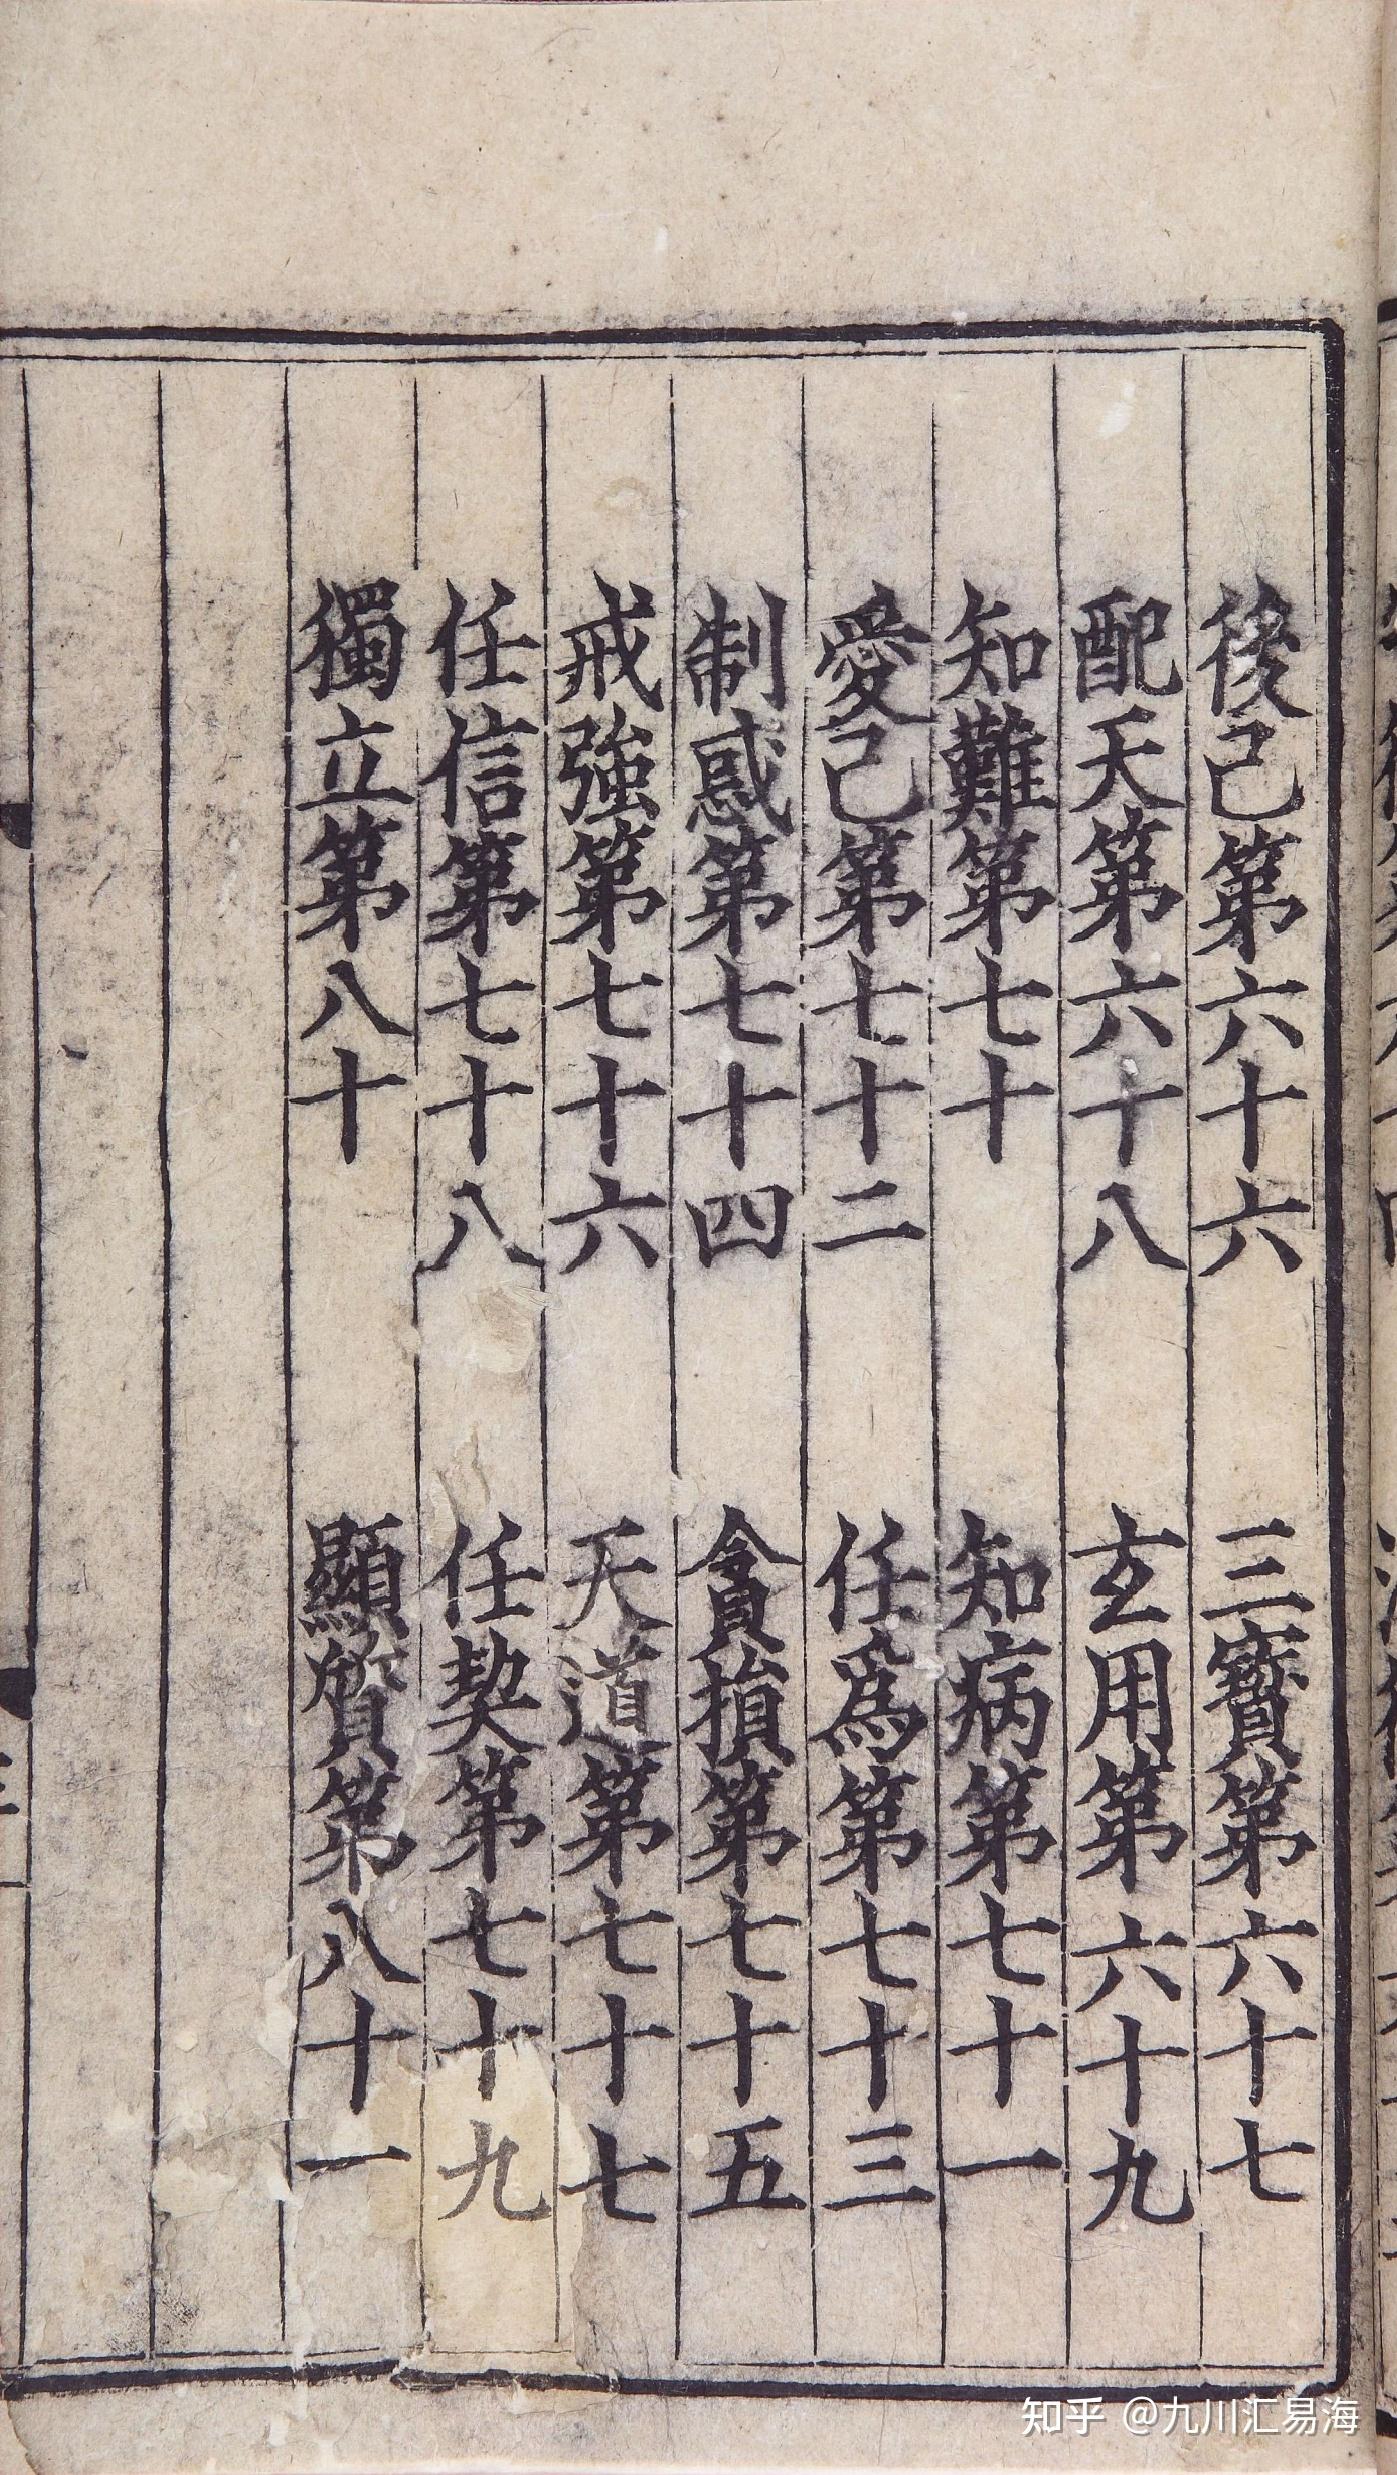 後己第六十六 三寶第六十七
配天第六十八 玄用第六十九
知難第七十 知病第七十一
愛己第七十二 任為第七十三
制惑第七十四 貪損第七十五
戒強第七十六 天道第七十七
任信第七十八 任契第七十九
獨立第八十 顯質第八十一
知乎 @九川汇易海